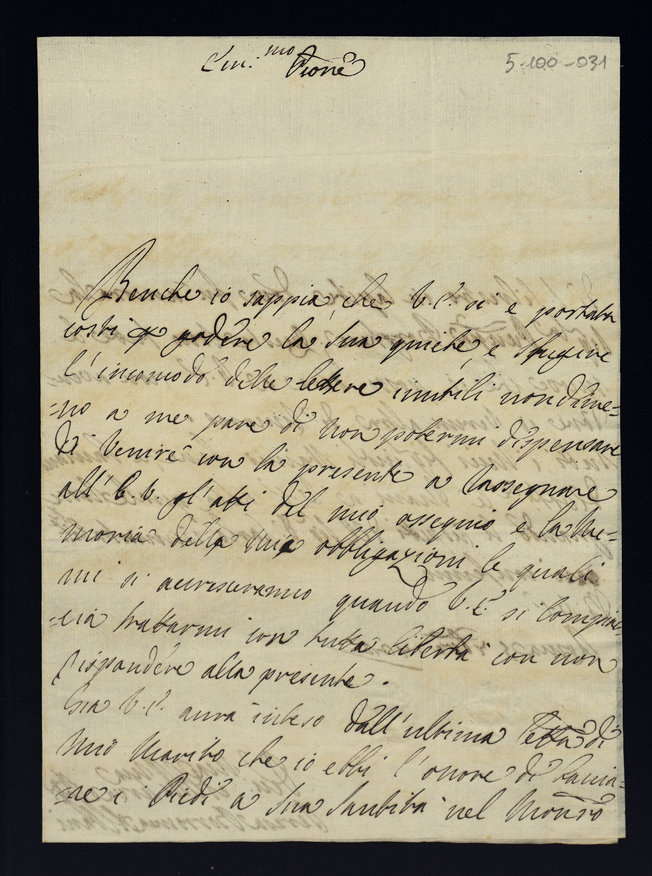 Em.mo Prone
5-100-031
Benche io sappia, che V.E. si e portata
costi p godere la sua quiete, e sfugire
l'incomodo delle lettere inutili nondime=
=no a me pare di non potermi dispensare
di venire con la presente a rassegnare
all'E.V. gl'atti del mio ossequio e la me=
moria delle mie obbligazioni le quali
mi si accresceranno quando V.E. si compiac=
=cia trattarmi con tutta libertà con non
rispondere alla presente.
Gia V.E. avrà inteso dall'ultima lettra di
mio Marito che io ebbi l'onore di bacia=
=re i Piedi a Sua Santità nel Monro